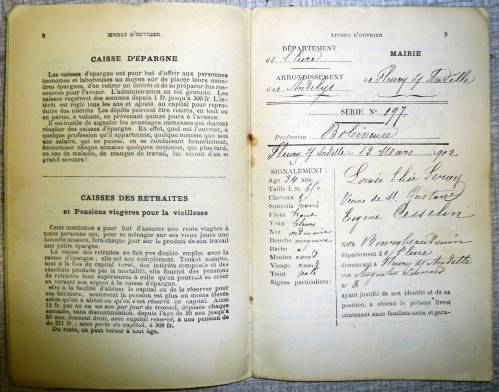 8 LIVRET D'OUVRIER
CAISSE D'ÉPARGNE
Les caisses d'épargne ont pour but d'offrir aux personnes
économes et laborieuses un moyen sûr de placer leurs moin-
dres épargnes, d'en retirer un intérêt et de se préparer des res-
sources pour l'avenir. L'administration en est gratuite. Les
caisses reçoivent des sommes depuis 1 fr. jusqu'à 300 fr. L'in-
térêt est réglé tous les ans et ajouté au capital pour repro-
duire des intérêts. Les dépôts peuvent être retirés, en tout ou
en partie, à volonté, en prévenant quinze jours à l'avance.
Il est inutile de signaler les avantages immenses qui doivent
résulter des caisses d'épargne. En effet, quel est l'ouvrier, à
quelque profession qu'il appartienne, quelque minime que soit
son salaire, qui ne puisse, en se conduisant honnêtement,
économiser chaque semaine quelques centimes, qui plus tard,
en cas de maladie, de manque de travail, lui seront d'un si
grand secours!
CAISSES DES RETRAITES
et Pensions viagères pour la vieillesse
Cette institution a pour but d'assurer une rente viagère à
toute personne qui, pour se ménager sur ses vieux jours une
honnête aisance, fera chaque jour sur le produit de son travail
une petite épargne.
La caisse des retraites ne fait pas double emploi avec la
caisse d'épargne; elle en est le complément. Tenant compte,
tout à la fois du capital versé, des intérêts composés et des
résultats produits par la mortalité, elle fournit des pensions
de retraites bien supérieures à celle qu'on pourrait se créer
en versant son argent à la caisse d'épargne.
On a la facilité d'aliéner le capital ou de le réserver pour
ses héritiers, seulement la pension est plus ou moins élevée
selon qu'on a aliéné ou qu'on s'est réservé ce capital. Ainsi
15 fr. par an ou un sou par jour de travail, déposés chaque
semaine, sans discontinuation, depuis l'âge de 20 ans jusqu'à
60 ans, donnent droit, avec capital réservé, à une pension de
de 221 fr.; avec perte du capital, à 308 fr.
Du reste, on peut verser à tout âge.
LIVRET D'OUVRIER 9
DÉPARTEMENT
de l'Eure
MAIRIE
ARRONDISSEMENT
des Andelys
de Fleury s/ Andelle
SÉRIE. N° 197.
Profession Bobineuse
Fleury s/ Andelle 12 Mars 1902
SIGNALEMENT:
Age 34 ans
Taille 1 m.
Cheveux
Sourcils
Front haut
Yeux bleus
Nez ordinaire
Bouche moyenne
Barbe
Menton rond
Visage rond
Teint
Signes particuliers:
Louise Elise Leroy
Veuve de M. Gustave
Eugène
Née à
département de l'Eure
demeurant à Fleury s/ Andelle
rue
N° 8
ayant justifié de son identité et de sa
position, a obtenu le présent livret
contenant onze feuillets cotés et para-